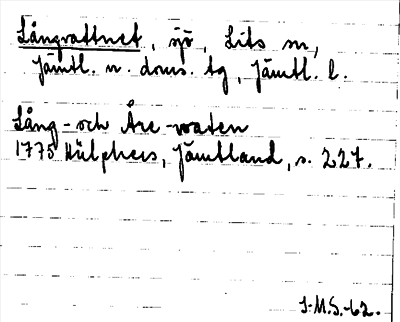 Långvattnet, sjö, Lits sn,
Jämtl. n. doms. tg, Jämtl. l.
Lång- och Åre-waten
1775 Hülphers, Jämtland, s. 227.
I.M.S.-62.